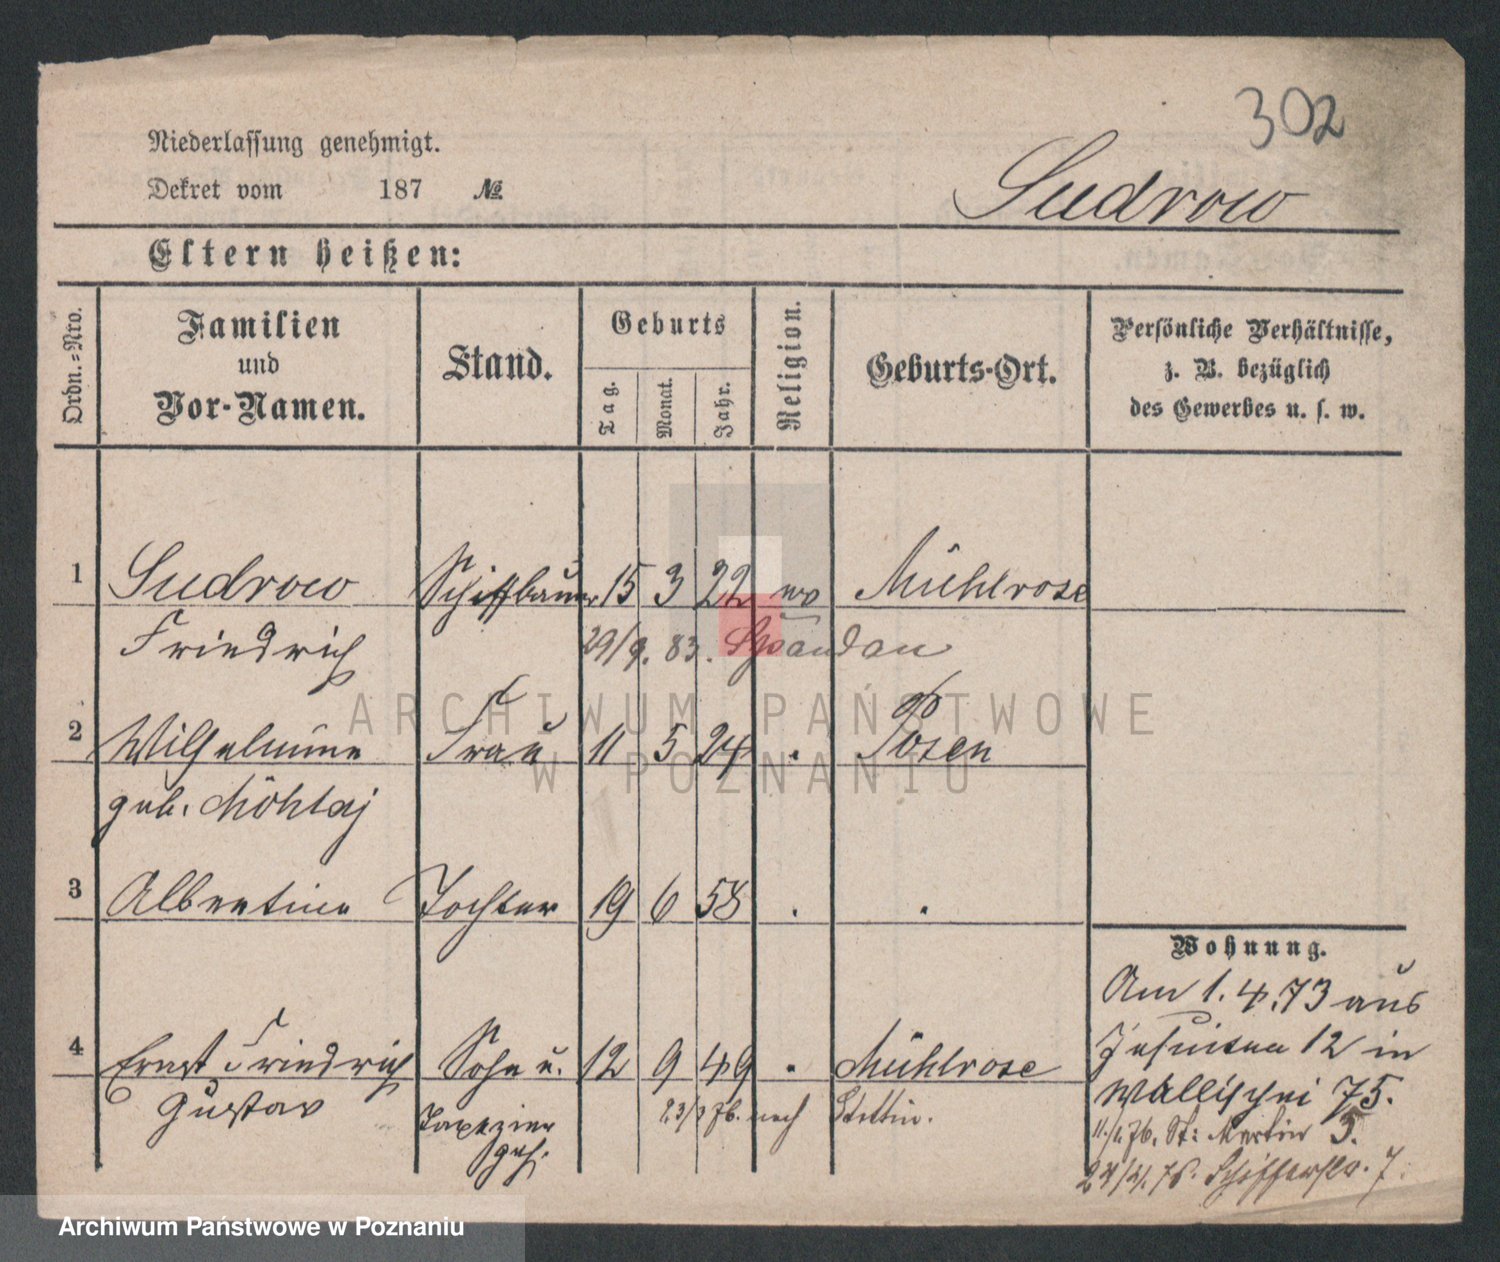 302
Niederlassung genehmigt.
Dekret vom 187 №
Sudrow
Eltern heißen:
Ordn.=Nro.
Familien
und
Vor-Namen.
Stand.
Geburts
Tag.
Monat.
Jahr.
Religion.
Geburts-Ort.
Persönliche Verhältnisse,
z. B. bezüglich
des Gewerbes u. s. w.
1 Sudrow Schiffbauer 15 3 22 ev Mühlrose
Friedrich 29/9. 83. Spandau
2 Wilhelmine Frau 11 5 24 . Posen
geb.
3 Albertine Tochter 19 6 58 . .
Wohnung.
Am 1. 4. 73 aus
Jesuiten 12 in
Wallischei 75.
11./1. 76. St: Martin 3.
24/4. 76. Schifferstr. 7.
4 Ernst Friedrich Sohn u. 12 9 49 . Mühlrose
Gustav Tapezier 23/3 76. nach Stettin.
geh.
ARCHIWUM PAŃSTWOWE
W POZNANIU
Archiwum Państwowe w Poznaniu